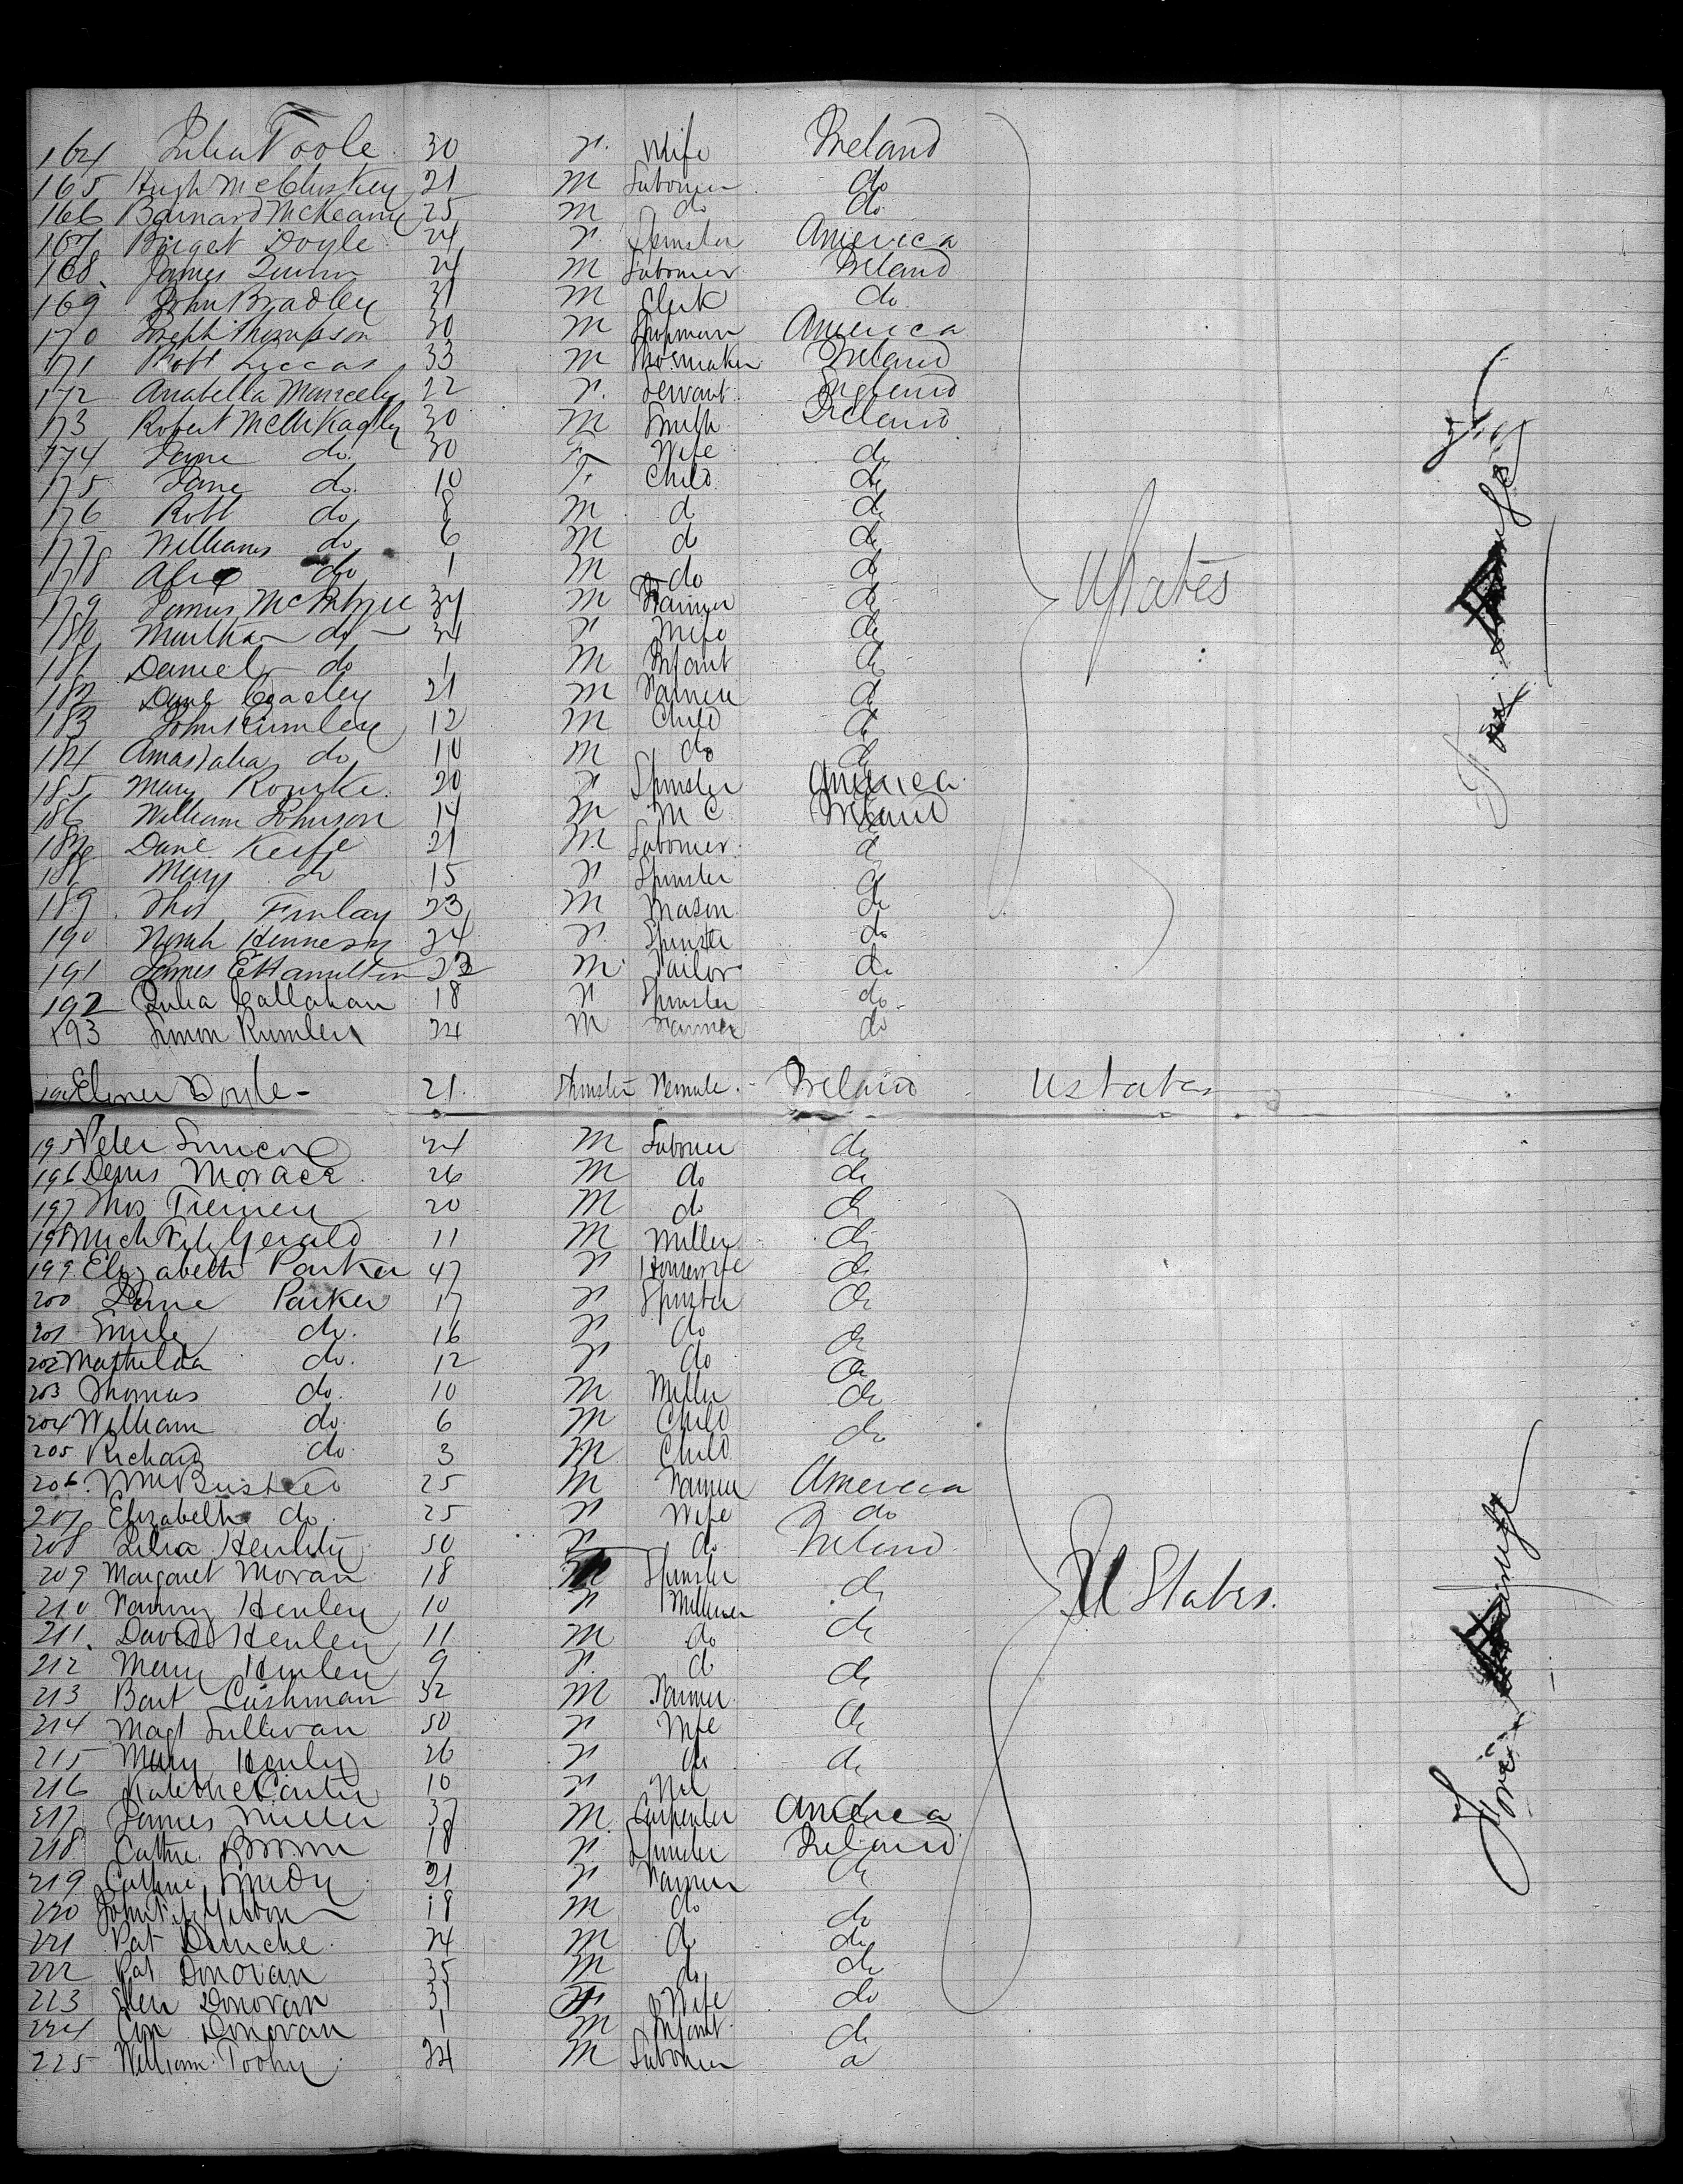 164 Julia Toole 30 F. Wife Ireland
165 Hugh McCluskey 21 M Labourer do
166 Barnard McKeany 25 M do do
167 Briget Doyle 24 F. Spinster America
168. James Quinn 24 M Labourer Ireland
169 John Bradley 31 M Clerk do
170 Joseph Thompson 30 M Shopman America
171 Robt Luccas 33 M Shoemaker Ireland
172 Anabella 22 F. Servant England
173 Robert 30 M Smith Ireland
174 Jane do. 30 F Wife do
175 Jane do. 10 F. Child do
176 Robt do 8 M do do
177 William do 6 M do do
178 do 1 M do do
179 James McIntyre 34 M Farmer do
180 Martha do 34 F Wife do
181 Daniel do 1 M Infant do
182 Danl 21 M Farmer do
183 John 12 M Child do
184 do 10 M do do
185 Mary Rourke 20 F Spinster America
186 William Johnson 14 M M C Ireland
187 Danl Keefe 21 M Labourer do
188 Mary do 15 F Spinster do
189 Thos Finlay 23 M Mason do
190 Norah Hennesy 24 F. Spinster do
191 James E Hamilton 23 M Tailor do
192 Julia Callahan 18 F Spinster do
193 Simon 24 M Farmer do
U States
194 Doyle 21 Spinster Female Ireland U States
195 Peter 24 M Labourer do
196 Denis 26 M do do
197 Thos 20 M do do
198 Mich FitzGerald 11 M Miller do
199. Elizabeth Parker 47 F Housewife do
200 Jane Parker 17 F Spinster do
201 Emily do. 16 F do do
202 Mathilda do. 12 F do do
203 Thomas do. 10 M Miller do
204 William do. 6 M Child do
205 Richard do. 3 M Child do
206. Wm Busteed 25 M Farmer America
207 Elizabeth do. 25 F Wife do
208 Julia 50 F do Ireland
209 Margaret Moran 18 Spinster do
210 Fanny Henley 10 F Milliner do
211. David Henley 11 M do do
212 Mary Henley 9 F. do do
213 Bart Cushman 32 M Farmer do
214 Magt Sullivan 50 F Wife do
215 Mary Henley 26 F do do
216 Carter 10 F Nil
217 James Miller 37 M Carpenter America
218 Cathne Brown 18 F Spinster Ireland
219 Cathne 21 F Farmer do
220 John FitzGibbon 18 M do do
221 Pat 24 M do do
222 Pat Donovan 35 M do do
223 Ellen Donovan 31 F Wife do
224 Donovan 1 M Infant do
225 William Toohy 24 M Labourer do
U States.